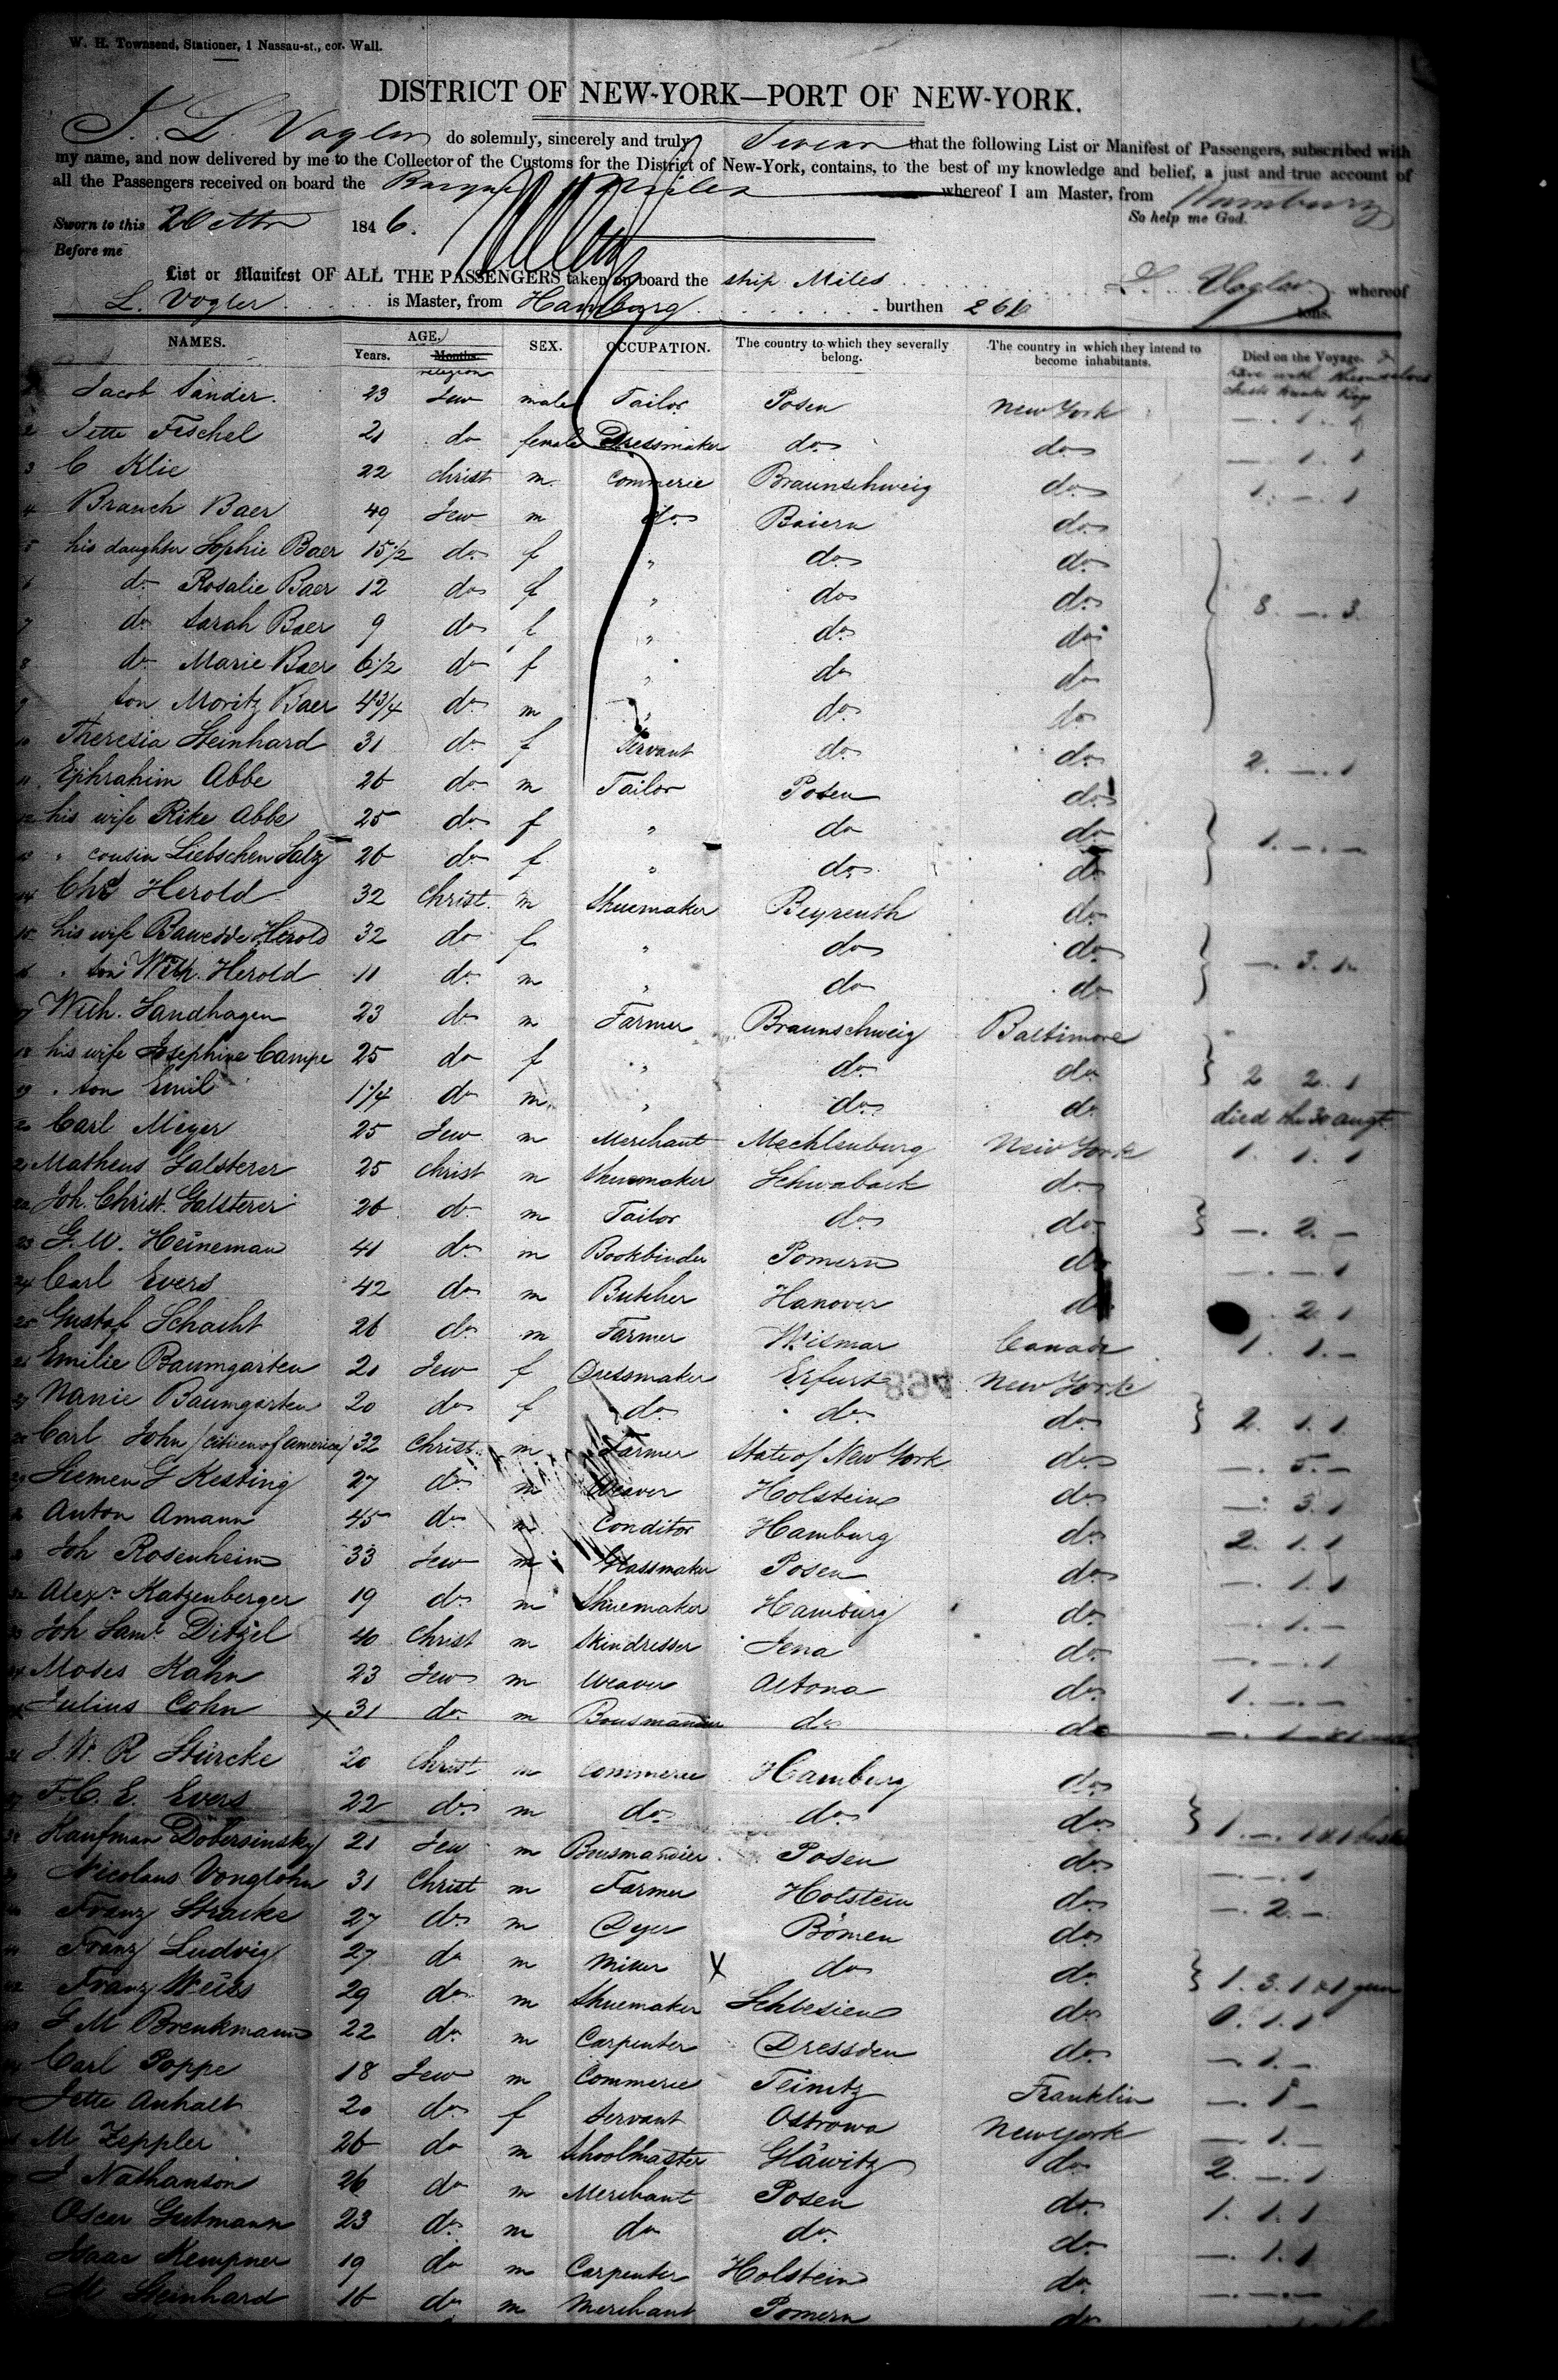 W. H. Townsend, Stationer, 1 Nassau-st., cor. Wall.
DISTRICT OF NEW-YORK—PORT OF NEW-YORK.
L. Vogler do solemnly, sincerely and truly Swear that the following List or Manifest of Passengers, subscribed with
my name, and now delivered by me to the Collector of the Customs for the District of New-York, contains, to the best of my knowledge and belief, a just and true account of
all the Passengers received on board the Barque Miles whereof I am Master, from Hamburg
So help me God.
Sworn to this 1846.
Before me
List or Manifest OF ALL THE PASSENGERS taken on board the ship Miles whereof
L. Vogler
L. Vogler is Master, from Hamburg burthen tons.
NAMES. AGE. SEX. OCCUPATION. The country to which they severally belong. The country in which they intend to become inhabitants. Died on the Voyage.
Years. Months. religion
Jacob Sander. 23 Jew male Tailor Posen New York
2 Jette Feschel 21 do female Dressmaker do do
3 C Klie 22 christ m. commerie Braunschweig do
4 Branch Baer 49 Jew m do Baiern do
5 his daughter Sophie Baer 15 1/2 do f " do do
6 do Rosalie Baer 12 do f " do do 8 — 3
7 do Sarah Baer 9 do f " do do
8 do Marie Baer 6 1/2 do f " do do
9 son Moritz Baer 4 3/4 do m " do do
10 Theresia Steinhard 31 do f Servant do do 2. — 1
11 Ephrahim Abbe 26 do m Tailor Posen do
12 his wife Rike Abbe 25 do f " do do 1. — —
13 " cousin Liebschen Salz 26 do f " do do
14 Chrs Herold 32 Christ. m Shuemaker Beyreuth do
15 his wife Herold 32 do f " do do — 3. 1
16 " son Wilh. Herold 11 do m " do do
17 Wilh. Sandhagen 23 do m Farmer Braunschweig Baltimore
18 his wife Josephine Campe 25 do f " do do 2 2. 1
19 " son Emil 1 1/4 do m " do do died the 30 augt
20 Carl Meyer 25 Jew m Merchant Mechlenburg New York 1. 1. 1
21 Matheus Galsterer 25 christ m Shuemaker Schwabach do
22 Joh. Christ. Galsterer 26 do m Tailor do do — 2. —
23 G. W. Heineman 41 do m Bookbinder Pomern do — — 1
24 Carl Evers 42 do m Butcher Hanover do 2 1
25 Gustaf Schacht 26 do m Farmer Wismar Canada 1. 1. —
26 Emilie Baumgarten 21 Jew f Dressmaker Erfurt New York
27 Nanie Baumgarten 20 do f do do do 2. 1. 1
28 Carl John (citizen of America) 32 Christ. m Farmer State of New York do — 5. —
29 Siemen G Kesting 27 do m Weaver Holstein do — 3. 1
30 Anton Amann 45 do m Conditor Hamburg do 2. 1. 1
31 Joh Rosenheim 33 Jew m Glassmaker Posen do — 1. 1
32 Alexr Katzenberger 19 do m Shuemaker Hamburg do — 1. —
33 Joh Saml Ditzel 40 Christ m Skindresser Jena do — — 1
34 Moses Kahn 23 Jew m Weaver Altona do 1. — —
35 Julius Cohn x 31 do m do do
36 J. W. R Stürcke 20 Christ m commerie Hamburg do
37 F. C. E. Evers 22 do m do do do
38 Kaufman Dobersinsky 21 Jew m Posen do — — 1
39 Nicolaus Vonglohn 31 Christ m Farmer Holstein do — 2. —
40 Franz Stracke 27 do m Dyer Bömen do
41 Franz Ludvig 27 do m Miller X do do 1. 3. 1
42 Franz Weiss 29 do m Shuemaker Schlesien do 0. 1. 1
G M Brenkmann 22 do m Carpenter Dressden do — 1. —
Carl Poppe 18 Jew m Commerie Teinitz Franklin — 1 —
Jette Anhalt 20 do f Servant Ostrowa New york — 1. —
M Zeppler 26 do m Schoolmaster Gläwitz do 2. — 1
J Nathanson 26 do m Merchant Posen do 1. 1. 1
Oscar Gutmann 23 do m do do do — 1. 1
Isaac Kempner 19 do m Carpenter Holstein do — — —
M Steinhard 16 do m Merchant Pomern do